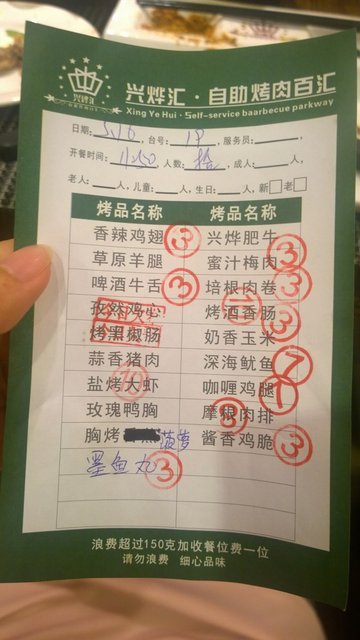 兴烨汇
兴烨汇·自助烤肉百汇
Xing Ye Hui·Self-service baarbecue parkway
日期: 5.16 ,台号: 19 ,服务员: ,
开餐时间: 11:50 人数: 拾 ,成人: 人,
老人: 人,儿童: 人,生日: 人,新□老□
烤品名称 烤品名称
香辣鸡翅 ③ 兴烨肥牛 ③
草原羊腿 蜜汁梅肉 ③
啤酒牛舌 ③ 培根肉卷 ③
孜然鸡心 烤酒香肠 ③
烤黑椒肠 奶香玉米
蒜香猪肉 深海鱿鱼
盐烤大虾 ⑩ 咖喱鸡腿
玫瑰鸭胸 摩根肉排 ③
胸烤 菠萝 酱香鸡脆 ③
墨鱼丸 ③
浪费超过150克加收餐位费一位
请勿浪费 细心品味